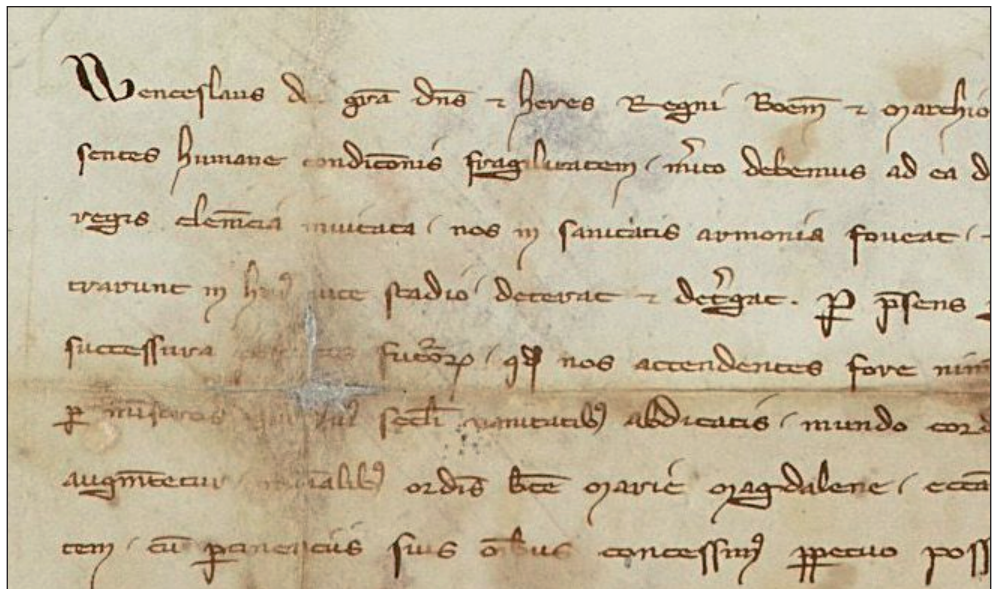 Wenceslaus d gr̄a dn̄s ⁊ heres Regni Boem̄ ⁊ marchio
sentes humane condic̄onis fragilitatem / m̄ito debemus ad ea d
regis clem̄cia inuitata / nos in sanitatis armonia foueat /
trarunt in stadio / deterat ⁊ det̾gat . ꝑ p̄sens
successura fut᷑oꝝ / nos attendentes fore
ꝑ secl̄i vanitatibꝰ abdicatis / mundo
augm̄tetur ordīs bt̄e marie magdalene / ecc̄a
tem / cū ꝑtinenciis suis om̄ibus concessimꝰ ꝑpetuo poss